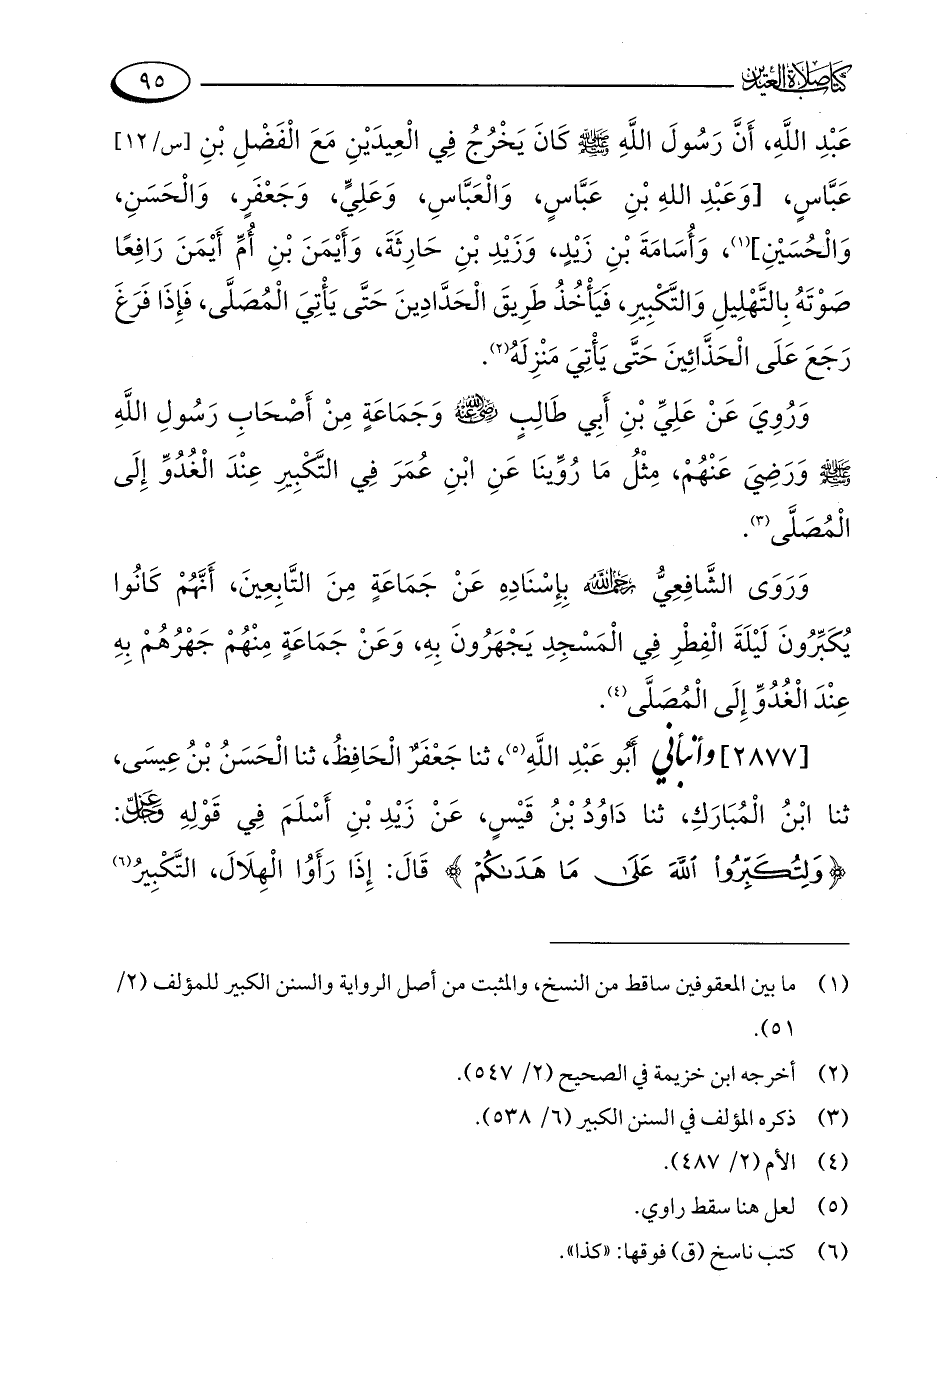 كتاب صلاة العيدين
٩٥
عَبْدِ اللَّهِ، أَنَّ رَسُولَ اللَّهِ ﷺ كَانَ يَخْرُجُ فِي الْعِيدَيْنِ مَعَ الْفَضْلِ بْنِ [س/١٢]
عَبَّاسٍ، [وَعَبْدِ اللهِ بْنِ عَبَّاسٍ، وَالْعَبَّاسِ، وَعَلِيٍّ، وَجَعْفَرٍ، وَالْحَسَنِ،
وَالْحُسَيْنِ]⁽١⁾، وَأُسَامَةَ بْنِ زَيْدٍ، وَزَيْدِ بْنِ حَارِثَةَ، وَأَيْمَنَ بْنِ أُمِّ أَيْمَنَ رَافِعًا
صَوْتَهُ بِالتَّهْلِيلِ وَالتَّكْبِيرِ، فَيَأْخُذُ طَرِيقَ الْحَدَّادِينَ حَتَّى يَأْتِيَ الْمُصَلَّى، فَإِذَا فَرَغَ
رَجَعَ عَلَى الْحَذَّائِينَ حَتَّى يَأْتِيَ مَنْزِلَهُ⁽٢⁾.
وَرُوِيَ عَنْ عَلِيِّ بْنِ أَبِي طَالِبٍ رضي الله عنه وَجَمَاعَةٍ مِنْ أَصْحَابِ رَسُولِ اللَّهِ
ﷺ وَرَضِيَ عَنْهُمْ، مِثْلُ مَا رُوِّينَا عَنِ ابْنِ عُمَرَ فِي التَّكْبِيرِ عِنْدَ الْغُدُوِّ إِلَى
الْمُصَلَّى⁽٣⁾.
وَرَوَى الشَّافِعِيُّ رحمه الله بِإِسْنَادِهِ عَنْ جَمَاعَةٍ مِنَ التَّابِعِينَ، أَنَّهُمْ كَانُوا
يُكَبِّرُونَ لَيْلَةَ الْفِطْرِ فِي الْمَسْجِدِ يَجْهَرُونَ بِهِ، وَعَنْ جَمَاعَةٍ مِنْهُمْ جَهْرُهُمْ بِهِ
عِنْدَ الْغُدُوِّ إِلَى الْمُصَلَّى⁽٤⁾.
[٢٨٧٧] وأنبأني أَبُو عَبْدِ اللَّهِ⁽٥⁾، ثنا جَعْفَرٌ الْحَافِظُ، ثنا الْحَسَنُ بْنُ عِيسَى،
ثنا ابْنُ الْمُبَارَكِ، ثنا دَاوُدُ بْنُ قَيْسٍ، عَنْ زَيْدِ بْنِ أَسْلَمَ فِي قَوْلِهِ عز وجل:
﴿وَلِتُكَبِّرُواْ ٱللَّهَ عَلَىٰ مَا هَدَىٰكُمْ﴾ قَالَ: إِذَا رَأَوُا الْهِلَالَ، التَّكْبِيرُ⁽٦⁾
(١) ما بين المعقوفين ساقط من النسخ، والمثبت من أصل الرواية والسنن الكبير للمؤلف (٢/
٥١).
(٢) أخرجه ابن خزيمة في الصحيح (٢/ ٥٤٧).
(٣) ذكره المؤلف في السنن الكبير (٦/ ٥٣٨).
(٤) الأم (٢/ ٤٨٧).
(٥) لعل هنا سقط راوي.
(٦) كتب ناسخ (ق) فوقها: «كذا».